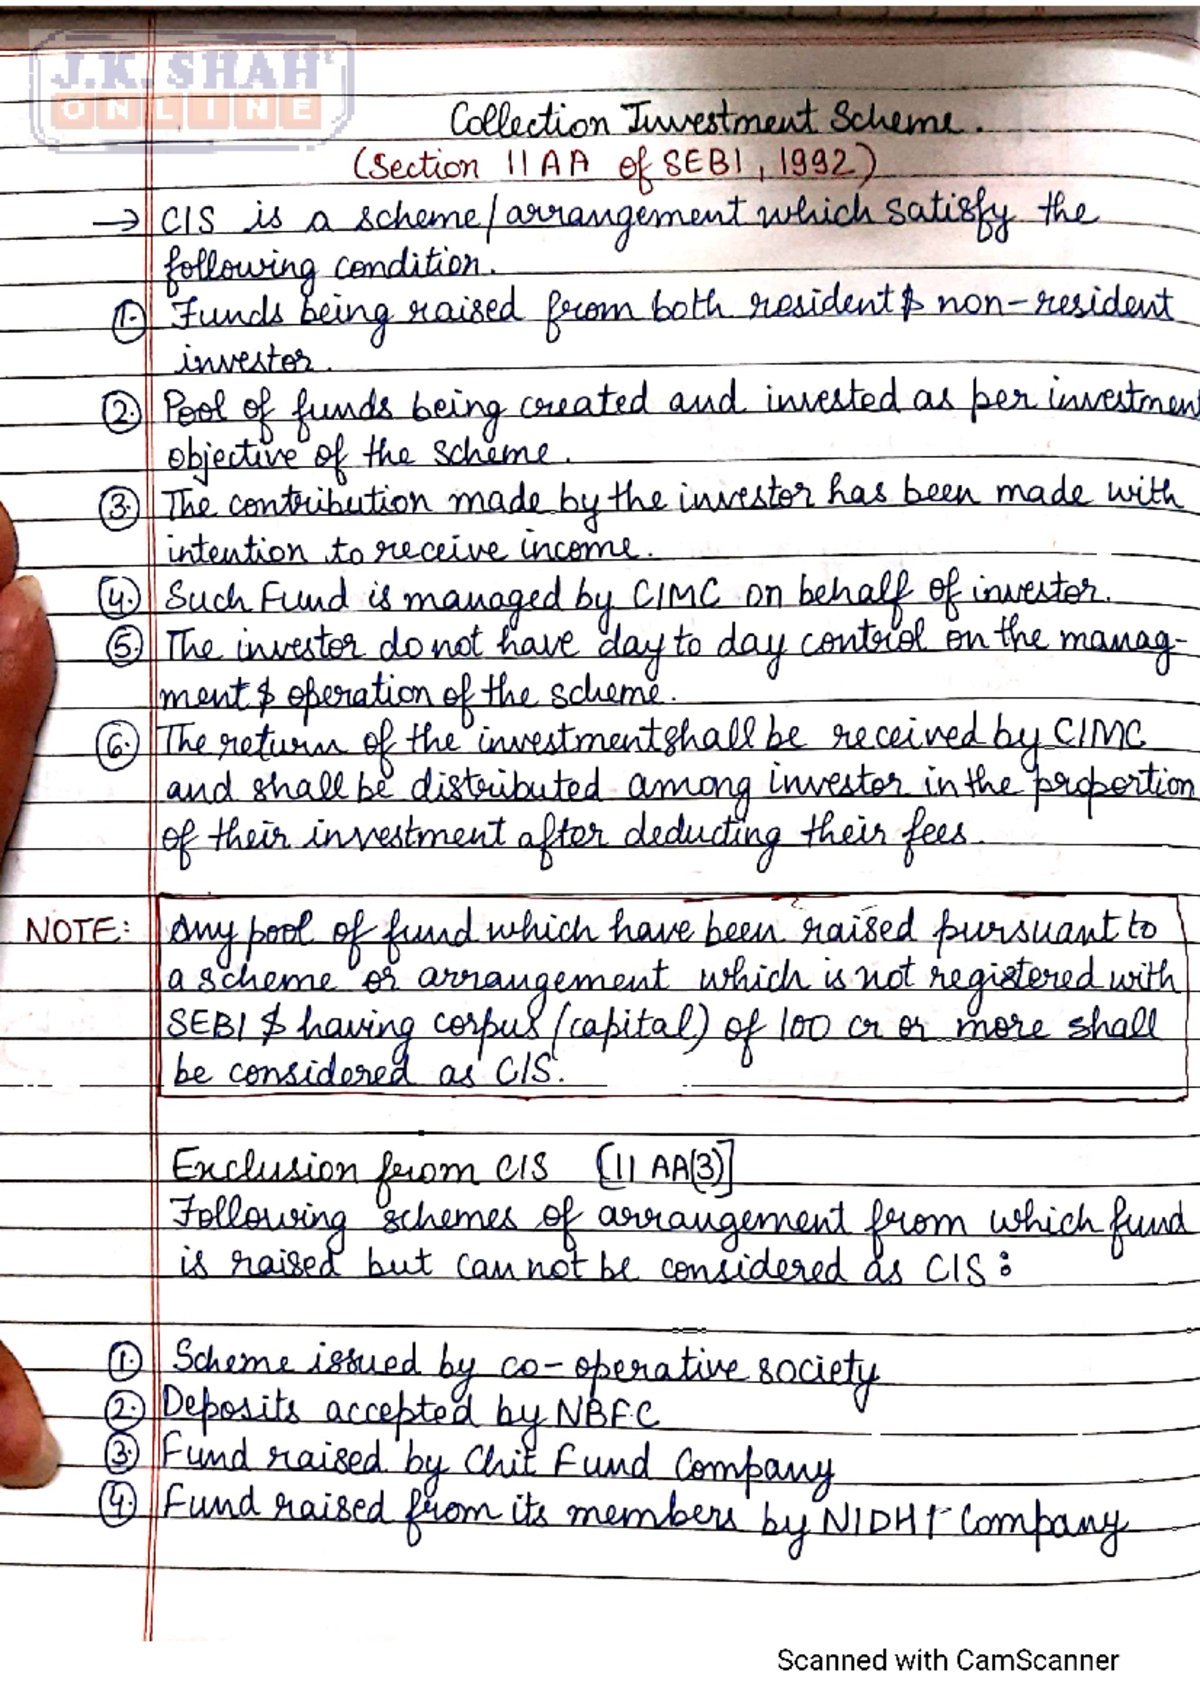 J.K. SHAH
ONLINE
Collection Investment Scheme.
(Section 11AA of SEBI, 1992)
→ CIS is a scheme/arrangement which satisfy the
following condition.
1. Funds being raised from both resident & non-resident
investor.
2. Pool of funds being created and invested as per investment
objective of the scheme.
3. The contribution made by the investor has been made with
intention to receive income.
4. Such Fund is managed by CIMC on behalf of investor.
5. The investor do not have day to day control on the manag-
ment & operation of the scheme.
6. The return of the investment shall be received by CIMC
and shall be distributed among investor in the proportion
of their investment after deducting their fees.
NOTE: Any pool of fund which have been raised pursuant to
a scheme or arrangement which is not registered with
SEBI & having corpus (capital) of 100 cr or more shall
be considered as CIS.
Exclusion from CIS [11 AA(3)]
Following schemes of arrangement from which fund
is raised but can not be considered as CIS:
1. Scheme issued by co-operative society
2. Deposits accepted by NBFC
3. Fund raised by Chit Fund Company
4. Fund raised from its members by NIDHI Company
Scanned with CamScanner